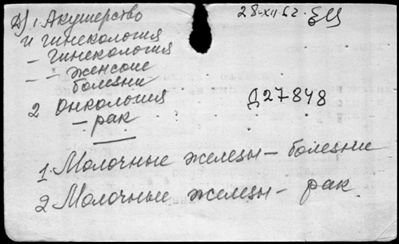 1 Акушерство
и гинекология
28-XII 62
– гинекология
– – женские
болезни
2 онкология
– рак
Д27848
1. Молочные железы – болезни
2. Молочные железы – рак